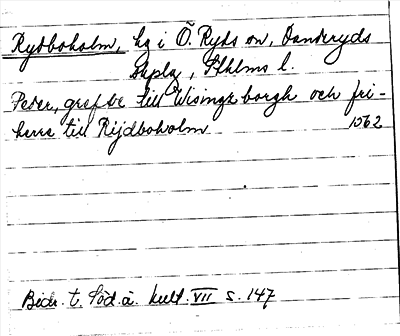 Rydboholm, hg i Ö. Ryds sn, Danderyds
skplg, Sthlms l.
Peder, grefve till Wisingzborgh och fri-
herre till Rijdboholm 1562
Bidr. t. Söd. ä. kult. VII s. 147